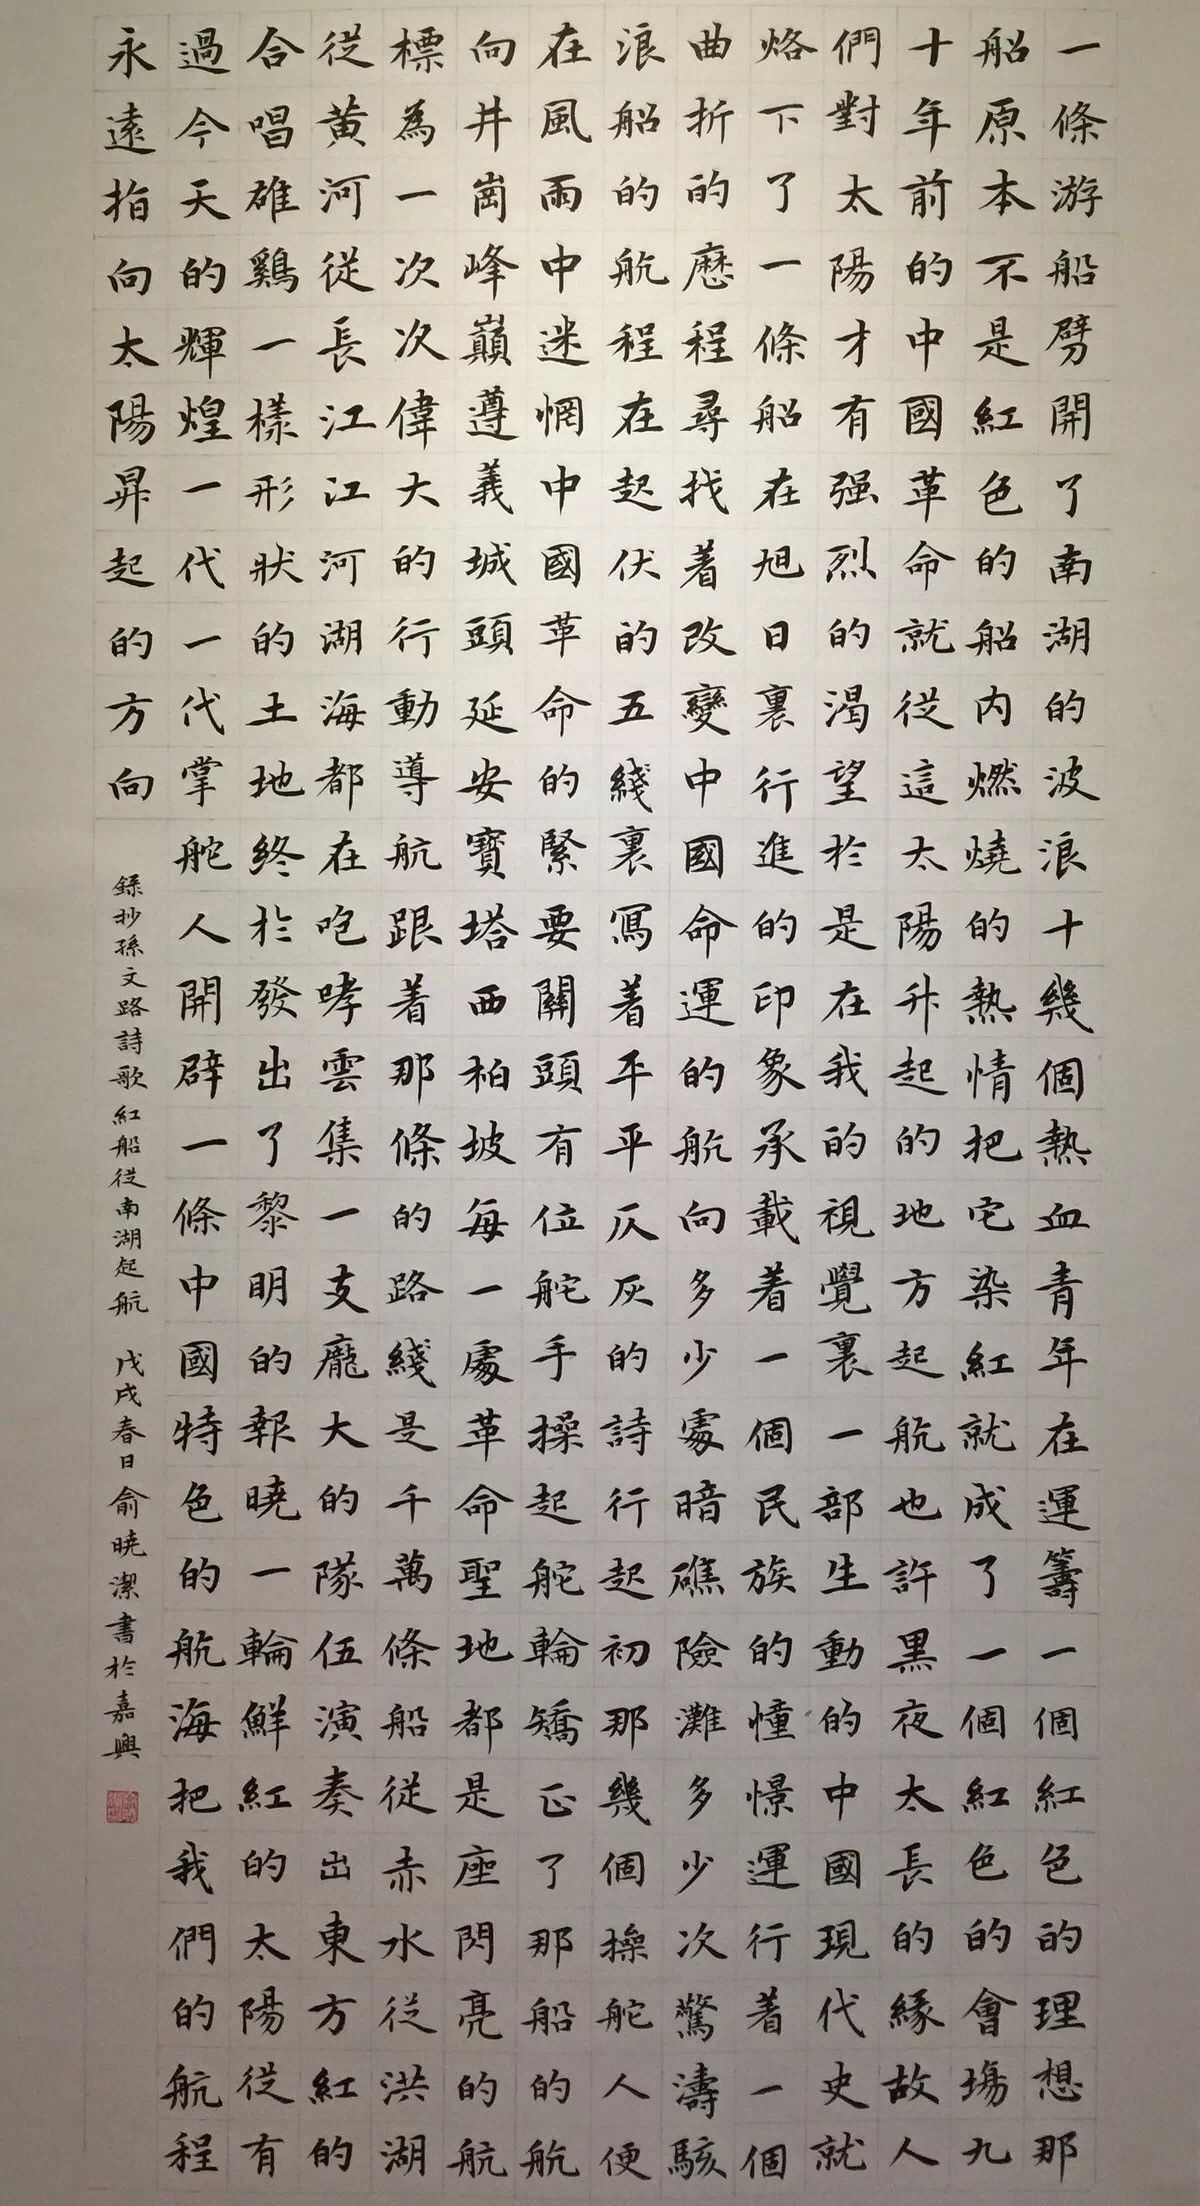 一條游船劈開了南湖的波浪十幾個熱血青年在運籌一個紅色的理想那
船原本不是紅色的船内燃燒的熱情把它染紅就成了一個紅色的會場九
十年前的中國革命就從這太陽升起的地方起航也許黑夜太長的緣故人
們對太陽才有强烈的渴望於是在我的視覺裏一部生動的中國現代史就
烙下了一條船在旭日裏行進的印象承載着一個民族的憧憬運行着一個
曲折的歷程尋找着改變中國命運的航向多少處暗礁險灘多少次驚濤駭
浪船的航程在起伏的五綫裏寫着平平仄灰的詩行起初那幾個操舵人便
在風雨中迷惘中國革命的緊要關頭有位舵手操起舵輪矯正了那船的航
向井崗峰巔遵義城頭延安寶塔西柏坡每一處革命聖地都是座閃亮的航
標為一次次偉大的行動導航跟着那條的路綫是千萬條船從赤水從洪湖
從黄河從長江江河湖海都在咆哮雲集一支龐大的隊伍演奏出東方紅的
合唱雄鷄一樣形狀的土地終於發出了黎明的報曉一輪鮮紅的太陽從有
過今天的輝煌一代一代掌舵人開辟一條中國特色的航海把我們的航程
永遠指向太陽昇起的方向
録抄孫文路詩歌紅船從南湖起航 戊戌春日俞曉潔書於嘉興